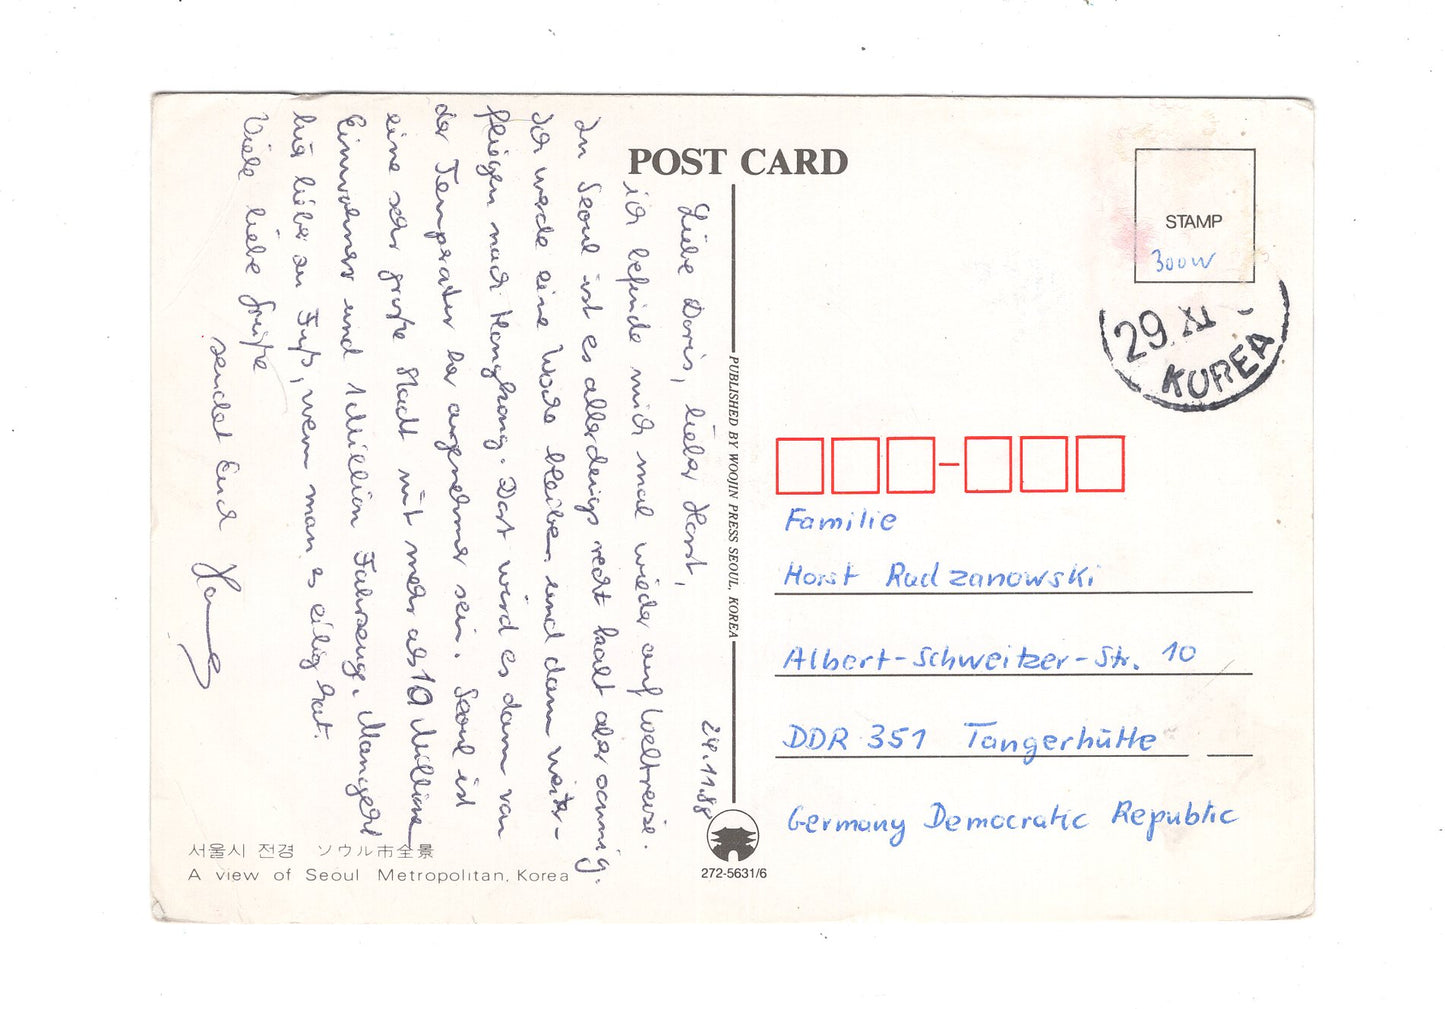 POST CARD
24.11.88
Liebe Doris, lieber Horst,
ich befinde mich mal wieder auf Weltreise.
In Seoul ist es allerdings recht kalt aber sonnig.
Ich werde eine Woche bleiben und dann weiter-
fliegen nach Hongkong. Dort wird es dann von
der Temperatur her angenehmer sein. Seoul ist
eine sehr große Stadt mit mehr als 10 Millionen
Einwohner und 1 Million Fahrzeuge. Man geht
hier lieber zu Fuß, wenn man es eilig hat.
Viele liebe Grüße
sendet Euch
서울시 전경 ソウル市全景
A view of Seoul Metropolitan, Korea
PUBLISHED BY WOOJIN PRESS SEOUL, KOREA
272-5631/6
STAMP
300W
29 XI
KOREA
Familie
Horst Radzanowski
Albert-Schweitzer-Str. 10
DDR 351 Tangerhütte
Germany Democratic Republic